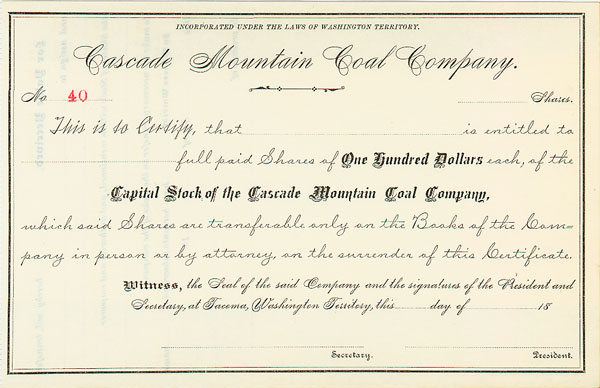 INCORPORATED UNDER THE LAWS OF WASHINGTON TERRITORY.
Cascade Mountain Coal Company.
No 40 Shares.
This is to Certify, that is entitled to
full paid Shares of One Hundred Dollars each, of the
Capital Stock of the Cascade Mountain Coal Company,
which said Shares are transferable only on the Books of the Com=
pany in person or by attorney, on the surrender of this Certificate.
Witness, the Seal of the said Company and the signatures of the President and
Secretary, at Tacoma, Washington Territory, this day of 18
Secretary. President.